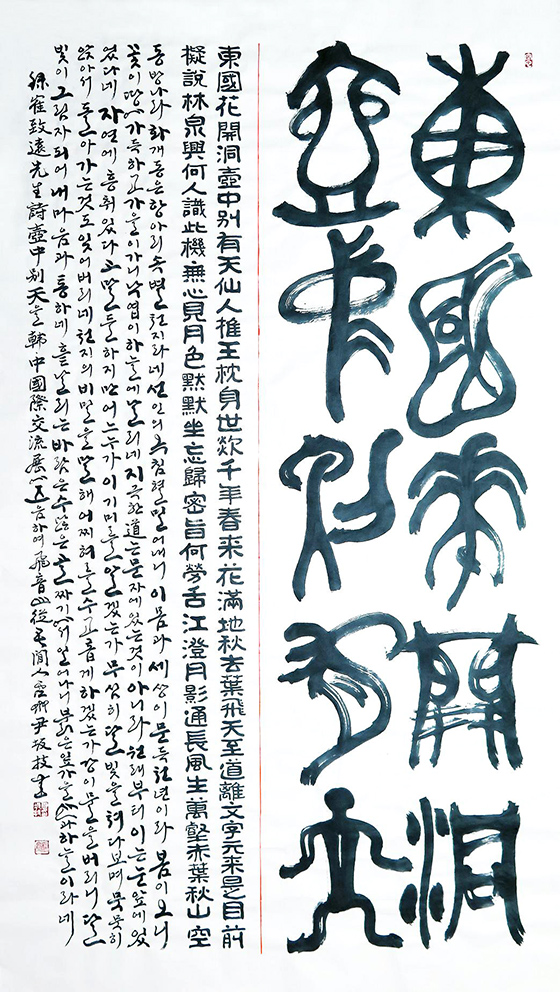 東國花開洞
壺中別有天
東國花開洞壺中别有天仙人推玉枕身世欻千年春來花滿地秋去葉飛天至道離文字元來是目前
擬說林泉興何人識此機無心見月色默默坐忘歸密旨何勞舌江澄月影通長風生萬壑赤葉秋山空
동방나라 화개동은 항아리속 별천지라네 선인이 옥침을 밀어내니 이몸과 세상이 문득 천년이라 봄이 오니
꽃이 땅에 가득하고 가을이 가니 낙엽이 하늘에 날리네 지극한 道는 문자에 있는것이 아니라 원래부터 이는 눈앞에 있
었다네 자연에 흥취있다고 말들하지만 어느누가 이 기미를 알겠는가 무심히 달빛을 쳐다보며 묵묵히
앉아서 돌아가는것도 잊어버리네 천지의 비밀을 말해 어찌 혀를 수고롭게 하겠는가 강이 물을 버리니 달
빛이 그림자되어 내마음과 통하네 흩날리는 바람은 수많은 골짜기에서 일어나니 붉은 잎 가을 산과 하늘이라네
崔致遠先生詩壺中別天을 韓中國際交流展